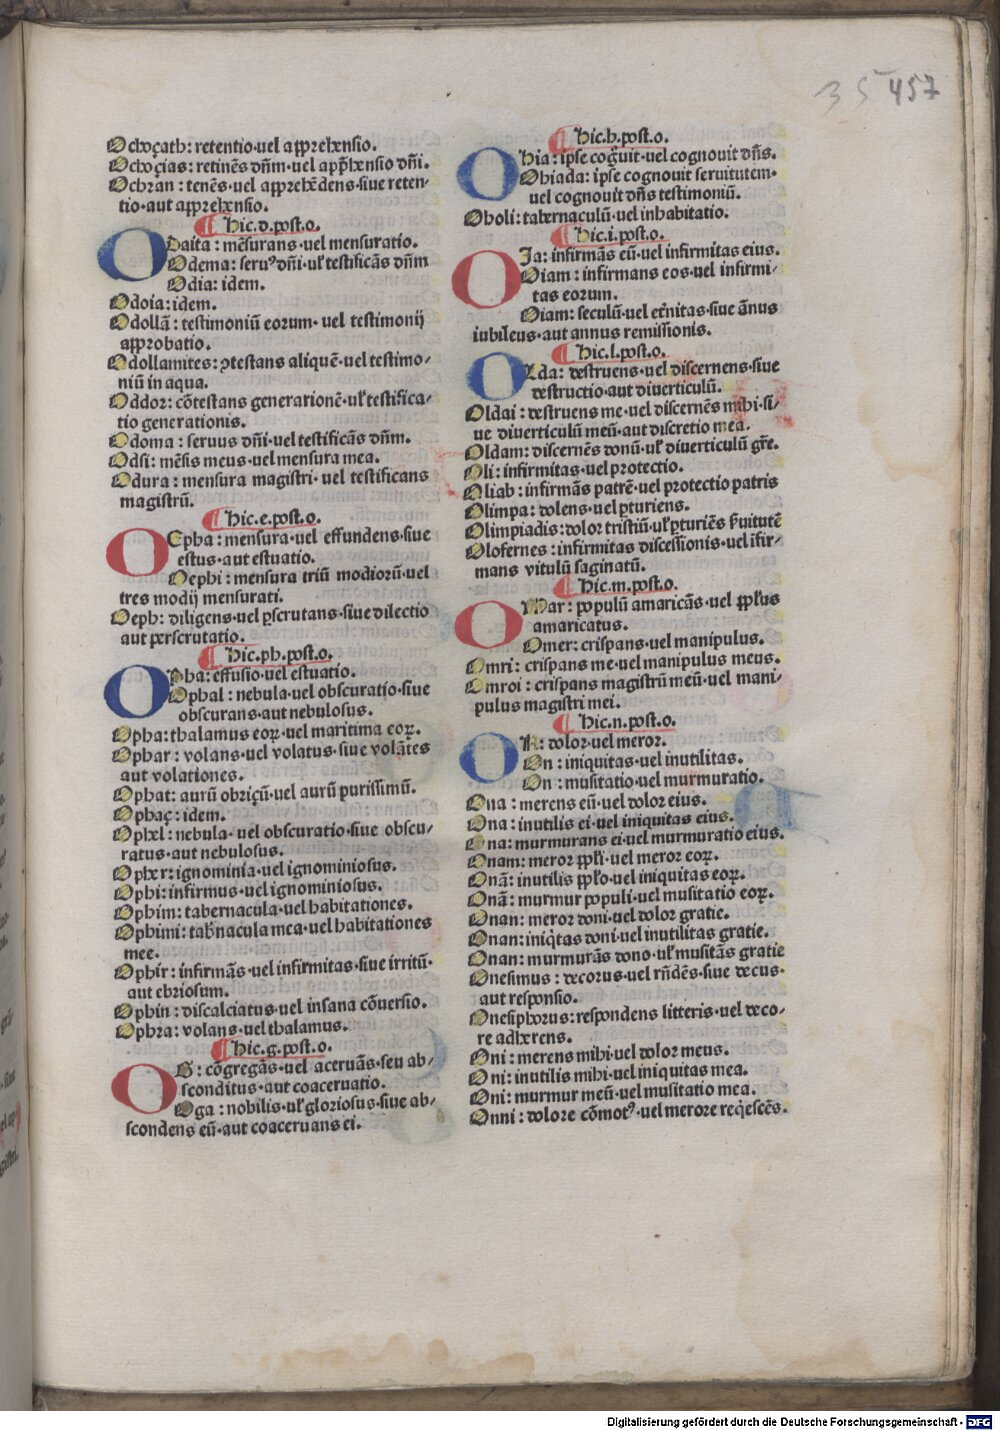 35 457
Ochoçath: retentio·uel apprehensio.
Ochoçias: retinēs dn̄m·uel app̄hensio dn̄i.
Ochran: tenēs·uel apprehēdens·siue reten-
tio·aut apprehensio.
¶ Hic.d.post.o.
Odaita: mēsurans·uel mensuratio.
Odema: seruꝰ dn̄i·uł testificās dn̄m
Odia: idem.
Odoia: idem.
Odollā: testimoniū eorum·uel testimonij
approbatio.
Odollamites: ꝯtestans aliquē·uel testimo-
niū in aqua.
Oddor: cōtestans generarionē·uł testifica-
tio generationis.
Odoma: seruus dn̄i·uel testificās dn̄m.
Odsi: mēsis meus·uel mensura mea.
Odura: mensura magistri·uel testificans
magistrū.
¶ Hic.e.post.o.
OEpha: mensura·uel effundens·siue
estus·aut estuatio.
Oephi: mensura triū modiorū·uel
tres modij mensurati.
Oeph: diligens·uel ꝑscrutans·siue dilectio
aut perscrutatio.
¶ Hic.ph.post.o.
OPha: effusio·uel estuatio.
Ophal: nebula·uel obscuratio·siue
obscurans·aut nebulosus.
Opha: thalamus eoꝝ·uel maritima eoꝝ.
Ophar: volans·uel volatus·siue volātes
aut volationes.
Ophat: aurū obriçū·uel aurū purissimū.
Ophaç: idem.
Ophel: nebula·uel obscuratio·siue obscu-
ratus·aut nebulosus.
Opher: ignominia·uel ignominiosus.
Ophi: infirmus·uel ignominiosus.
Ophim: tabernacula·uel habitationes.
Ophimi: tab̄nacula mea·uel habitationes
mee.
Ophir: infirmās·uel infirmitas·siue irritū·
aut ebriosum.
Ophin: discalciatus·uel insana cōuersio.
Ophra: volans·uel thalamus.
¶ Hic.g.post.o.
OG: cōgregās·uel aceruās·seu ab-
sconditus·aut coaceruatio.
Oga: nobilis·uł gloriosus·siue ab-
scondens eū·aut coaceruans ei.
¶ Hic.h.post.o.
Ohia: ipse coḡuit·uel cognouit dn̄s.
Ohiada: ipse cognouit seruitutem·
uel cognouit dn̄s testimoniū.
Oholi: tabernaculū·uel inhabitatio.
¶ Hic.i.post.o.
OIa: infirmās eū·uel infirmitas eius.
Oiam: infirmans eos·uel infirmi-
tas eorum.
Oiam: seculū·uel et̄nitas·siue ānus
iubileus·aut annus remissionis.
¶ Hic.l.post.o.
OLda: destruens·uel discernens·siue
destructio·aut diuerticulū.
Oldai: destruens me·uel discernēs mihi·si-
ue diuerticulū meū·aut discretio mea.
Oldam: discernēs donū·uł diuerticulū gr̄e.
Oli: infirmitas·uel protectio.
Oliab: infirmās patrē·uel protectio patris
Olimpa: dolens·uel ꝑturiens.
Olimpiadis: dolor tristiū·uł ꝑturiēs s̄uitutē
Olofernes: infirmitas discessionis·uel īfir-
mans vitulū saginatū.
¶ Hic.m.post.o.
OMar: populū amaricās·uel ꝓpłus
amaricatus.
Omer: crispans·uel manipulus.
Omri: crispans me·uel manipulus meus.
Omroi: crispans magistrū meū·uel mani-
pulus magistri mei.
¶ Hic.n.post.o.
ON: dolor·uel meror.
On: iniquitas·uel inutilitas.
On: musitatio·uel murmuratio.
Ona: merens eū·uel dolor eius.
Ona: inutilis ei·uel iniquitas eius.
Ona: murmurans ei·uel murmuratio eius.
Onam: meror ppłi·uel meror eoꝝ.
Onā: inutilis ppło·uel iniquitas eoꝝ.
Onā: murmur populi·uel musitatio eoꝝ.
Onan: meror doni·uel dolor gratie.
Onan: iniq̇tas doni·uel inutilitas gratie.
Onan: murmurās dono·uł musitās gratie
Onesimus: decorus·uel rn̄dēs·siue decus·
aut responsio.
Onesiphorus: respondens litteris·uel deco-
re adherens.
Oni: merens mihi·uel dolor meus.
Oni: inutilis mihi·uel iniquitas mea.
Oni: murmur meū·uel musitatio mea.
Onni: dolore cōmotꝰ·uel merore req̇escēs.
Digitalisierung gefördert durch die Deutsche Forschungsgemeinschaft - DFG